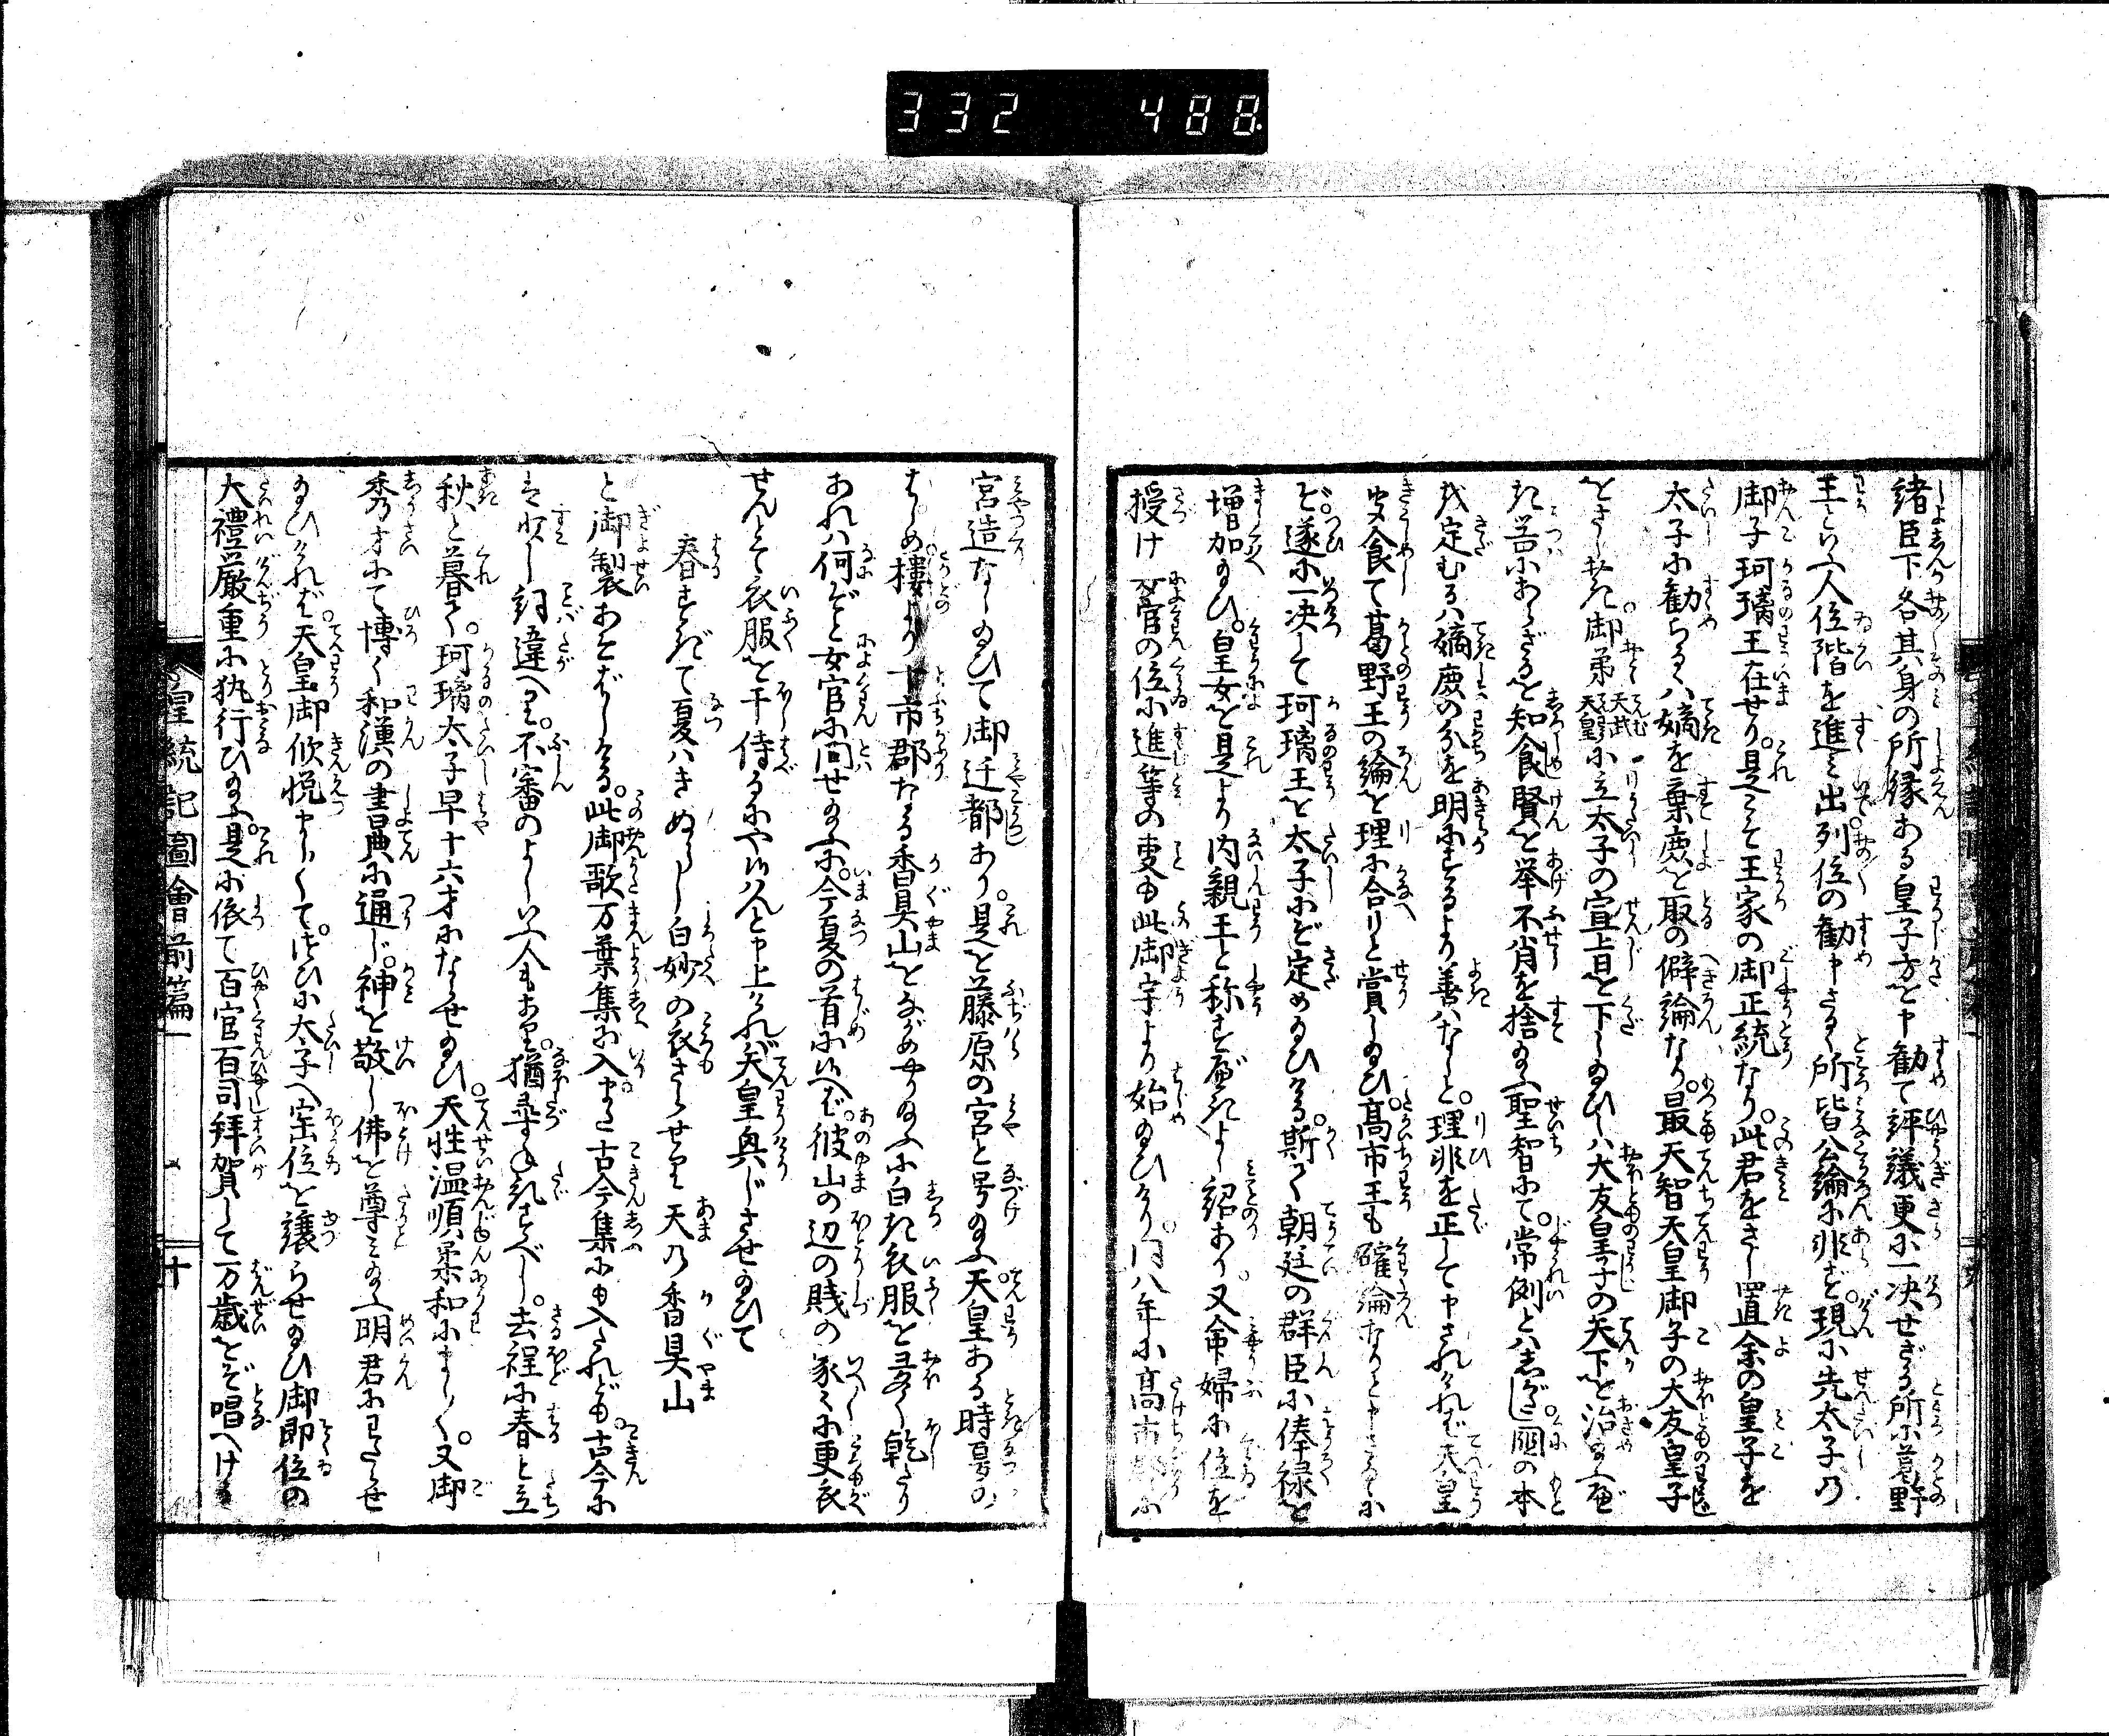 332 488
緒臣下各其身の所縁ある皇子方を申勧て評議更に一决せざる所に葛野
王といふ人位階を進み出列位の勧申さるゝ所皆公論に非ず現に先太子の
御子珂瑀王在せり是こそ王家の御正統なり此君をさし置余の皇子を
太子に勧らるゝハ嫡を棄庶を取の僻論なり最天智天皇御子の大友皇子
をさし措御弟天武天皇に立太子の宣旨を下し給ひしハ大友皇子の天下を治給ふ
に苦にあらざるを知食賢を挙不肖を捨給ふ聖智にて常例とハしがたし国の本
を定むるハ嫡庶の分を明にするより善ハなしと理非を正して申されけれバ天皇
聞食て葛野王の論を理に合りと賞し給ひ高市王も確論なりと申さるゝに
ぞ遂に一决して珂瑀王を太子にぞ定め給ひける斯く朝廷の群臣に俸禄を
増加給ひ皇女を是より内親王と称すべきよし詔あり又命婦に位を
授け女官の位に進等の事も此御宇より始給ひけり同八年に高市郡に
宮造なし給ひて御迁都あり是を藤原の宮と号給ふ天皇ある時
楼より十市郡なる香具山をながめやり給ふに白き衣服を多く乾たり
あれハ何ぞと女官に問せ給ふに今夏の首に候へバ彼山の辺の賎の家々に更衣
せんとて衣服を干侍るにや候ハんと申上けれバ天皇興じさせ給ひて
春すぎて夏ハきぬらし白妙の衣さらせり天の香具山
と御製あそばしける此御歌万葉集に入また古今集にも入たれども古今に
ハ少し詞違へり不審のよしいふ人もあり猶尋ね記すべし去程に春と立
秋と暮て珂瑀太子早十六才にならせ給ひ天性温順柔和にましく又御
秀才にて博く和漢の書典に通じ神を敬し佛を尊み給ふ明君にわたらせ
給ひけれバ天皇御欣悦ましくて終に太子へ宝位を譲らせ給ひ御即位の
大禮厳重に执行ひ給ふ是に依て百官百司拜賀して万歳をぞ唱へける
皇統記圖會前篇一
十